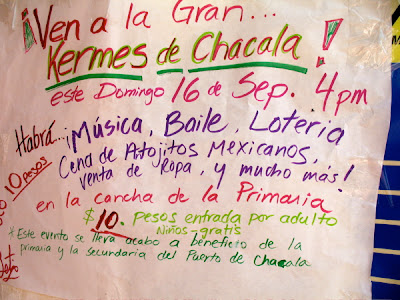 ¡Ven a la Gran... !
Kermes de Chacala
este Domingo 16 de Sep. 4pm
Habrá... ¡Música, Baile, Loteria
Cena de Atojitos Mexicanos,
venta de Ropa, y mucho más!
10 pesos
en la cancha de la Primaria
$10. pesos entrada por adulto
Niños - gratis
* Este evento se lleva acabo a beneficio de la
primaria y la secundaria del Puerto de Chacala